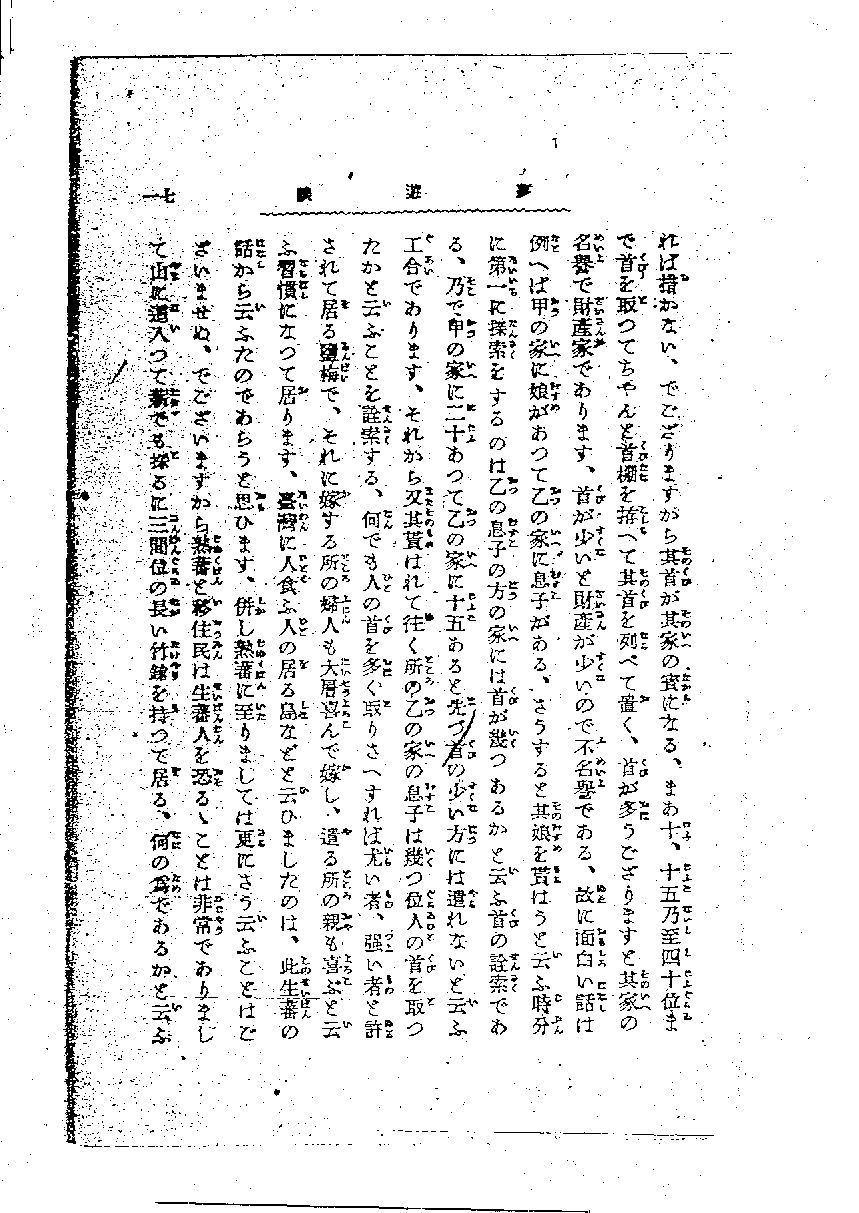 夢遊談
七一
れば措かない、でござりますがら其首が其家の寳になる、まあ十、十五乃至四十位ま
で首を取つてちやんと首棚を拵へて其首を列べて置く、首が多うござりますと其家の
名譽で財產家であります、首が少いと財產が少いので不名譽である、故に面白い話は
例へば甲の家に娘があつて乙の家に息子がある、さうすると其娘を貰はうと云ふ時分
に第一に探索をするのは乙の息子の方の家には首が幾つあるかと云ふ首の詮索であ
る、乃で甲の家に二十あつて乙の家に十五あると先づ首の少い方には遣れないと云ふ
工合であります、それがら又其貰はれて往く所の乙の家の息子は幾つ位人の首を取つ
たかと云ふことを詮索する、何でも人の首を多く取りさへすれば尤い者、强い者と許
されて居る鹽梅で、それに嫁する所の婦人も大層喜んで嫁し、遣る所の親も喜ぶと云
ふ習慣になつて居ります、臺灣に人食ふ人の居る島などと云ひましたのは、此生蕃の
話から云ふたのであらうと思ひます、併し熟蕃に至りましては更にさう云ふことはご
ざいませぬ、でございますから熟蕃と移住民は生蕃人を恐るゝことは非常でありまし
て山に這入つて薪でも採るに三間位の長い竹鎗を持つて居る、何の爲であるかと云ふ